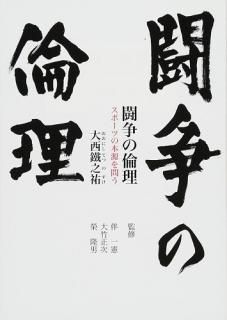 闘争の
倫理
闘争の倫理
スポーツの本源を問う
大西鐵之祐
おおにしてつのすけ
監修
伴一憲
大竹正次
榮隆男